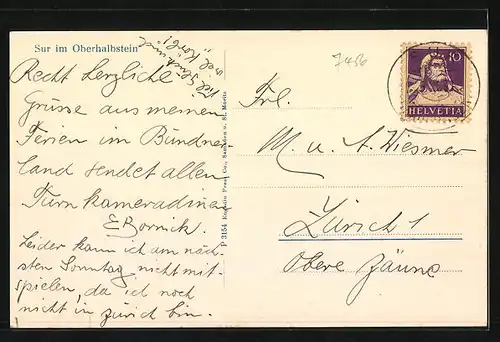 Sur im Oberhalbstein
Recht herzliche
Grüsse aus meinen
Ferien im Bündner-
land sendet allen
Turnkameradinen
E. Bornik.
Leider kann ich am näch-
sten Sonntag nicht mit-
spielen, da ich noch
nicht in Zürich bin.
viel "Korb"!
P 3154 Engadin Press Co., Samaden u. St. Moritz
7456
10
HELVETIA
Frl.
M. u. A. Wiesmer
Zürich 1
Obere Zäune